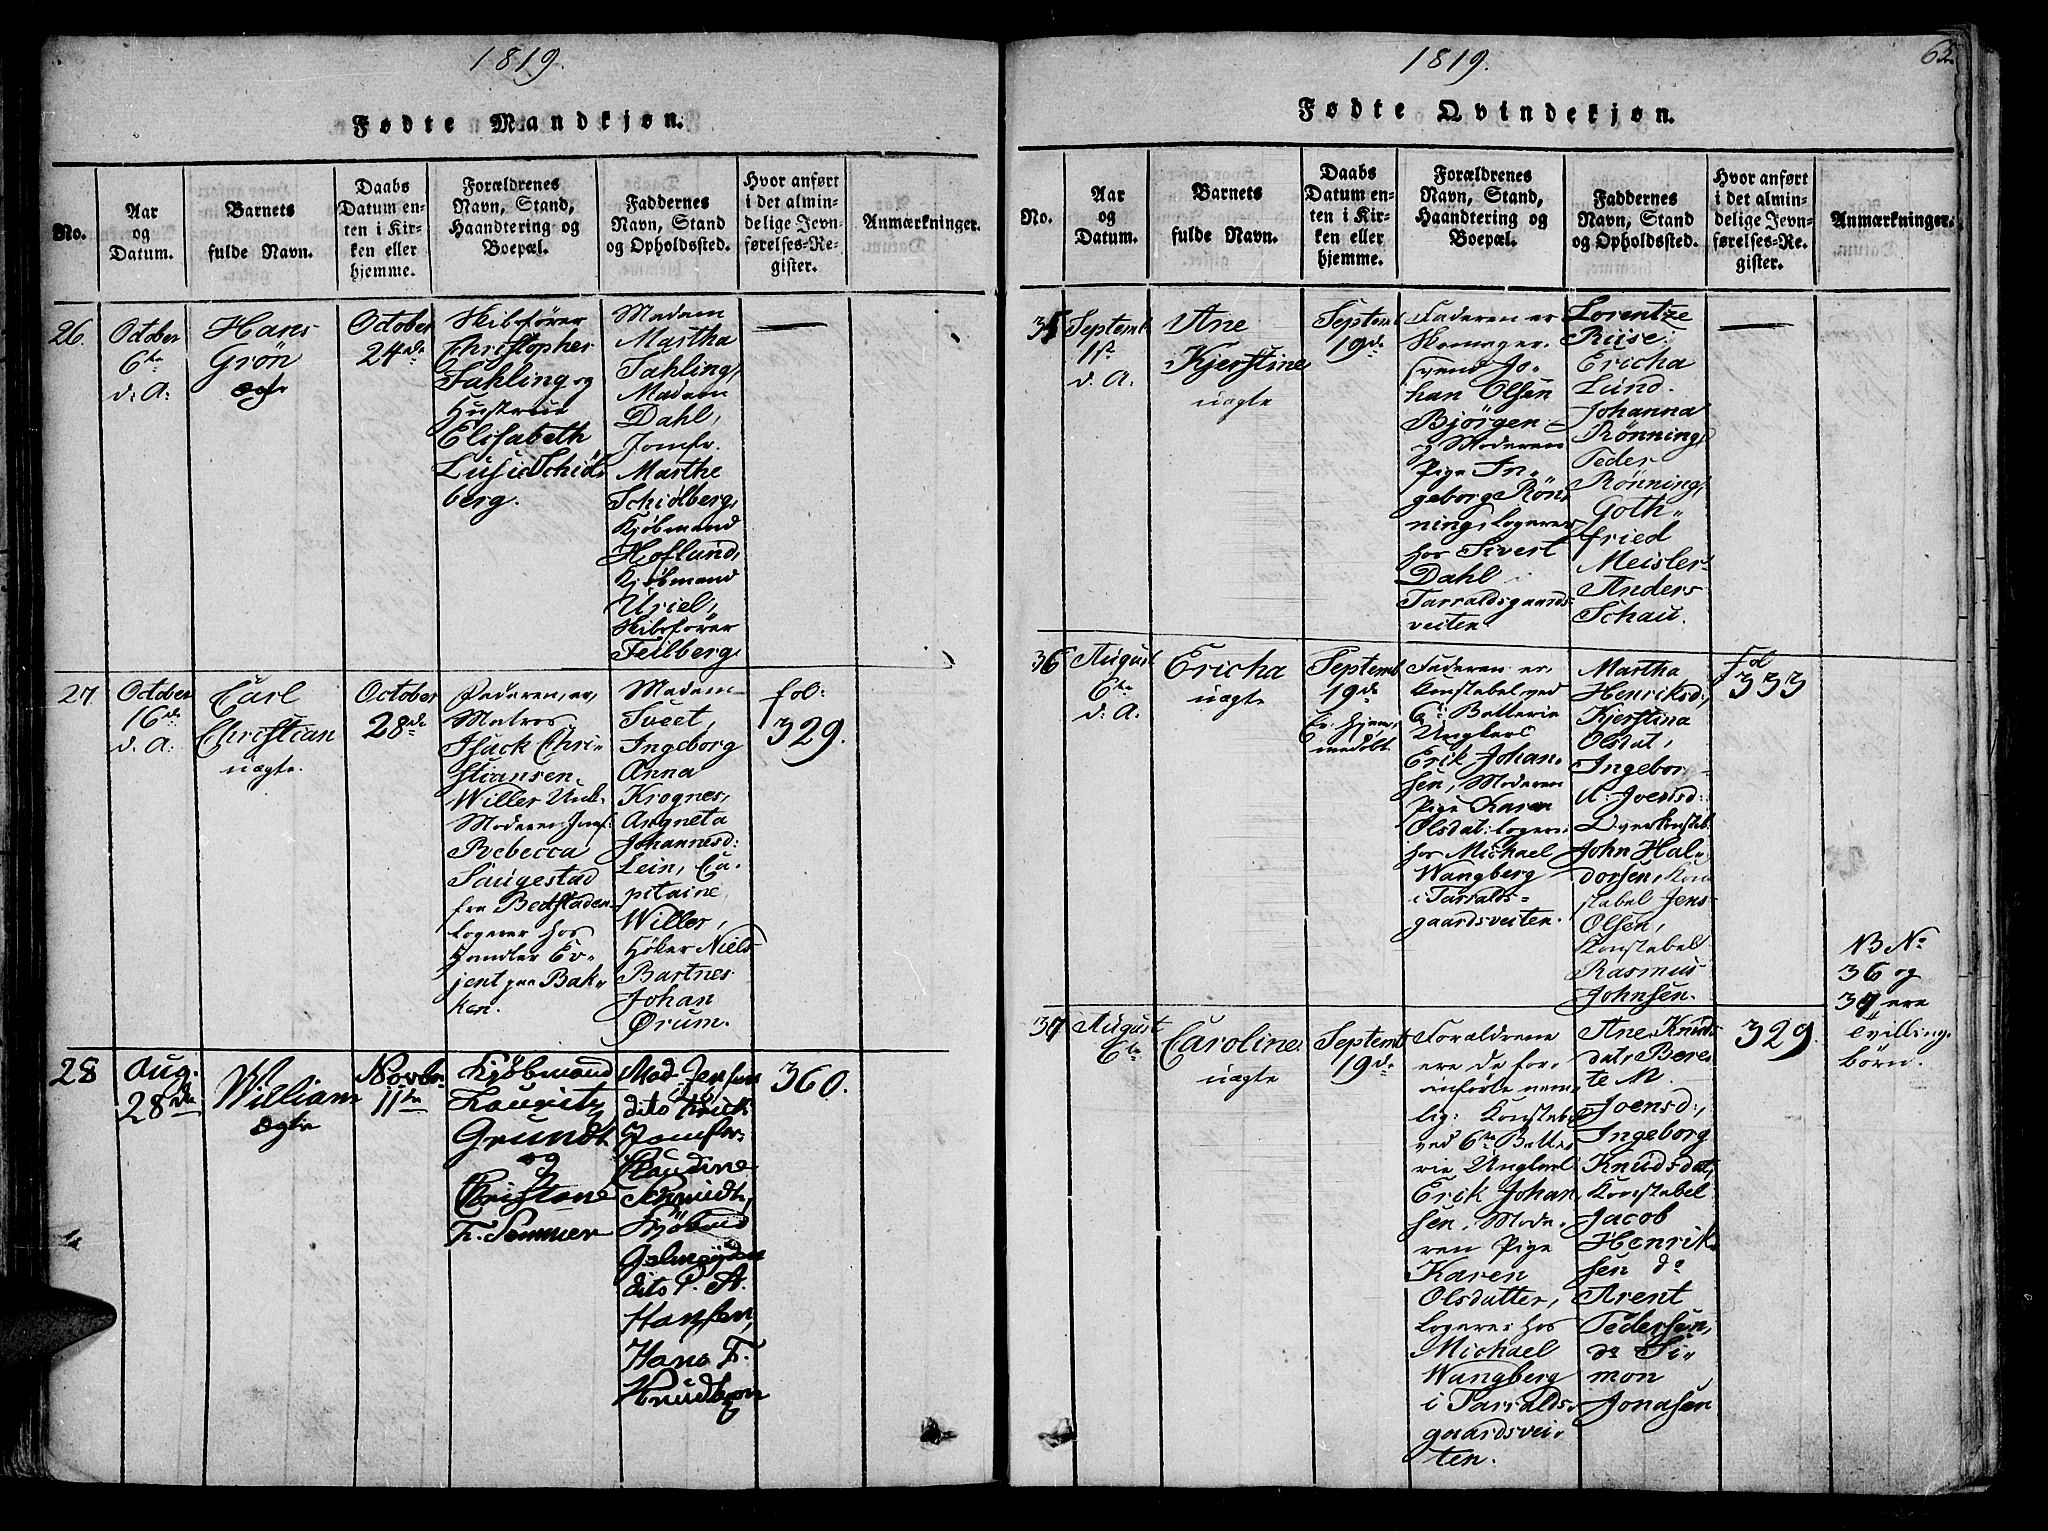 1819.
Fødte Mandkjøn.
No.
Aar
og
Datum.
Barnets
fulde Navn.
Daabs
Datum en-
ten i Kir-
ken eller
hjemme.
Forældrenes
Navn, Stand,
Haandtering og
Boepæl.
Faddernes
Navn, Stand
og Opholdssted.
Hvor anført
i det almin-
delige Jevn-
førelses-Re-
gister.
Anmærkninger.
26.
October
6te
d: A:
Hans
Grøn
ægte
October
24de
Skibsfører
Christopher
Fahling og
Hustrue
Elisabeth
Lusie Schiöl
berg.
Madam
Martha
Fahling,
Madam
Dahl,
Jomfr.
Marthe
Schiölberg,
Kjöbmand
Hoflund,
Kjöbmand
Uriel,
Skibsfører
Feilberg
27
October
16de
d. A:
Carl
Christian
uægte.
October
28de
Faderen er,
Matros
Isack Chri-
stiansen
Willer
Moderen Jomf:
Rebecca
Saugestad
fra Bedstaden
logerer hos
Handler Ev-
jent paa Bak-
ken.
Madam
Sveet,
Ingeborg
Anna
Krognes,
Angneta
Johannesd:
Lein, Ca-
pitaine
Willer,
Höker Niels
Bartnes
Johan
Ørum.
fol:
329.
28
Aug.
28de
William
ægte
Novbr.
11te
Kjöbmand
Lauritz
Grundt
og
Christane
F. Sommer
Mad. Jensen
dito Krick
Jomfr.
Claudine
Schmidt,
Kjöbmd
Galmeyden
dito P. A.
Hansen,
Hans F.
Knudtzon
360.
1819.
65.
Fødte Qvindekjøn.
No.
Aar
og
Datum.
Barnets
fulde Navn.
Daabs
Datum en-
ten i Kir-
ken eller
hjemme.
Forældrenes
Navn, Stand,
Haandtering og
Boepæl.
Faddernes
Navn, Stand
og Opholdssted.
Hvor anført
i det almin-
delige Jevn-
førelses-Re-
gister.
Anmærkninger.
35
Septemb.
1st
d. A:
Ane
Kjerstine
uægte
Septemb
19de
Faderen er
Skomager
svend Jo-
han Olsen
Bjørgen
og Moderen
Pige In-
geborg Røn-
ning, logerer
hos Sivert
Dahl i
Tarraldsgaards-
veiten
Lorentze
Riise.
Ericha
Lund.
Johanna
Rønning,
Peder
Rønning,
Goth-
fried
Meisler
Anders
Schau.
36
August
6te
d: A.
Ericha
uægte
Septemb
19de
Er hjem-
medöbt
Faderen er
Konstabel ved
6te Batterie
Unglert
Erik Johan-
sen, Moderen
Pige Karen
Olsdat: logerer
hos Michael
Wangberg
i Tarralds-
gaardsveiten.
Martha
Henriksd:,
Kjerstina
Olsdat,
Ingebor-
A: Joensd:
Overkonstab.
John Hal-
dorsen, Kon
stabel Jens
Olsen,
Konstabel
Rasmus
Johnsen.
Fol
333
37
August
6te
Caroline
uægte
Septemb
19de
Forældrene
ere de for-
anførte nem-
lig: Konstabel
ved 6te Batte-
rie Unglert
Erik Johan
sen, Mode-
ren Pige
Karen
Olsdatter,
logerer hos
Michael
Wangberg
i Tarralds-
gaardsvei-
ten.
Ane Knuds
dat, Bere-
te M.
Joensd:,
Ingeborg
Knudsdat,
Konstabel
Jacob
Henrik-
sen do
Arent
Pedersen,
do Si-
mon
Jonasen
329.
NB No
36 og
37 ere
Tvilling-
börn.